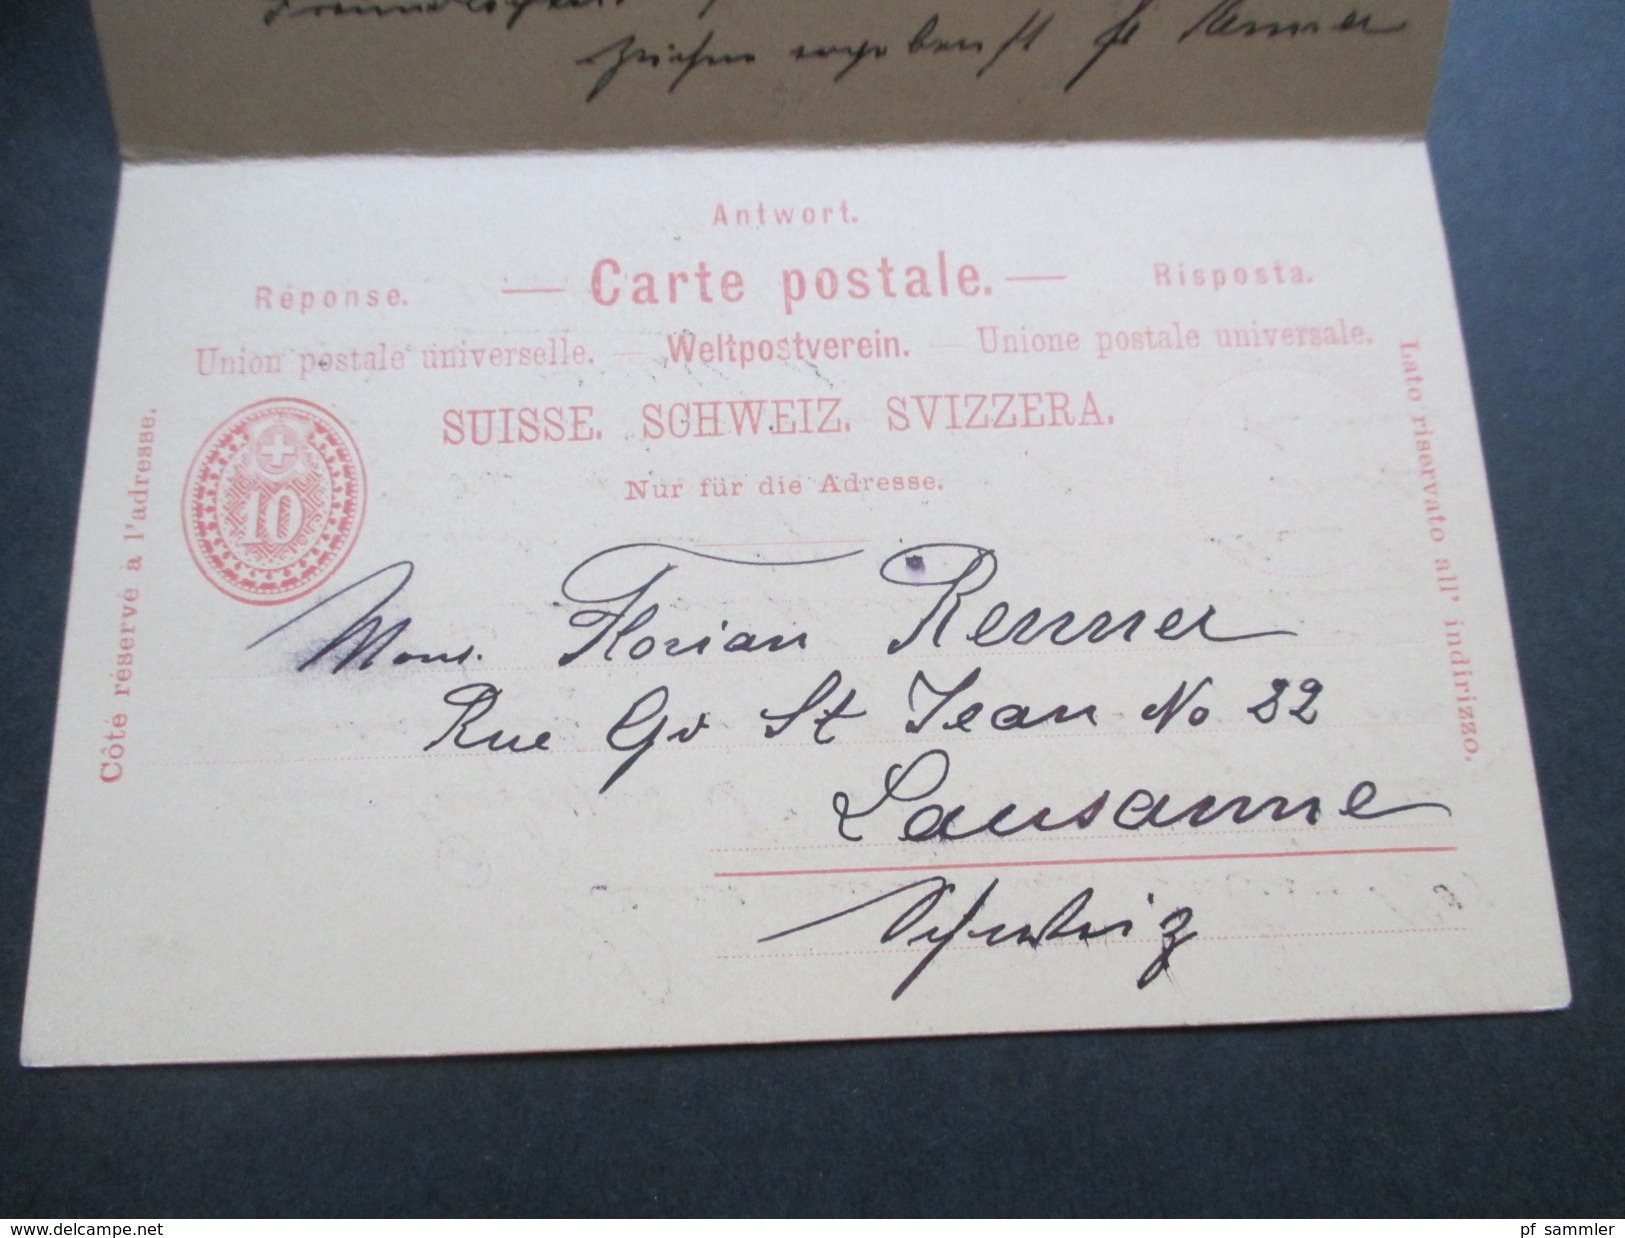 Freundlichkeit
Zeichne ergebenst Fl Renner
Antwort.
Réponse. — Carte postale. — Risposta.
Union postale universelle. — Weltpostverein. — Unione postale universale.
SUISSE. SCHWEIZ. SVIZZERA.
Nur für die Adresse.
Côté réservé à l'adresse.
Lato riservato all' indirizzo.
10
Mons. Florian Renner
Rue Gd St Jean No 22
Lausanne
Schweiz
www.delcampe.net
pf_sammler